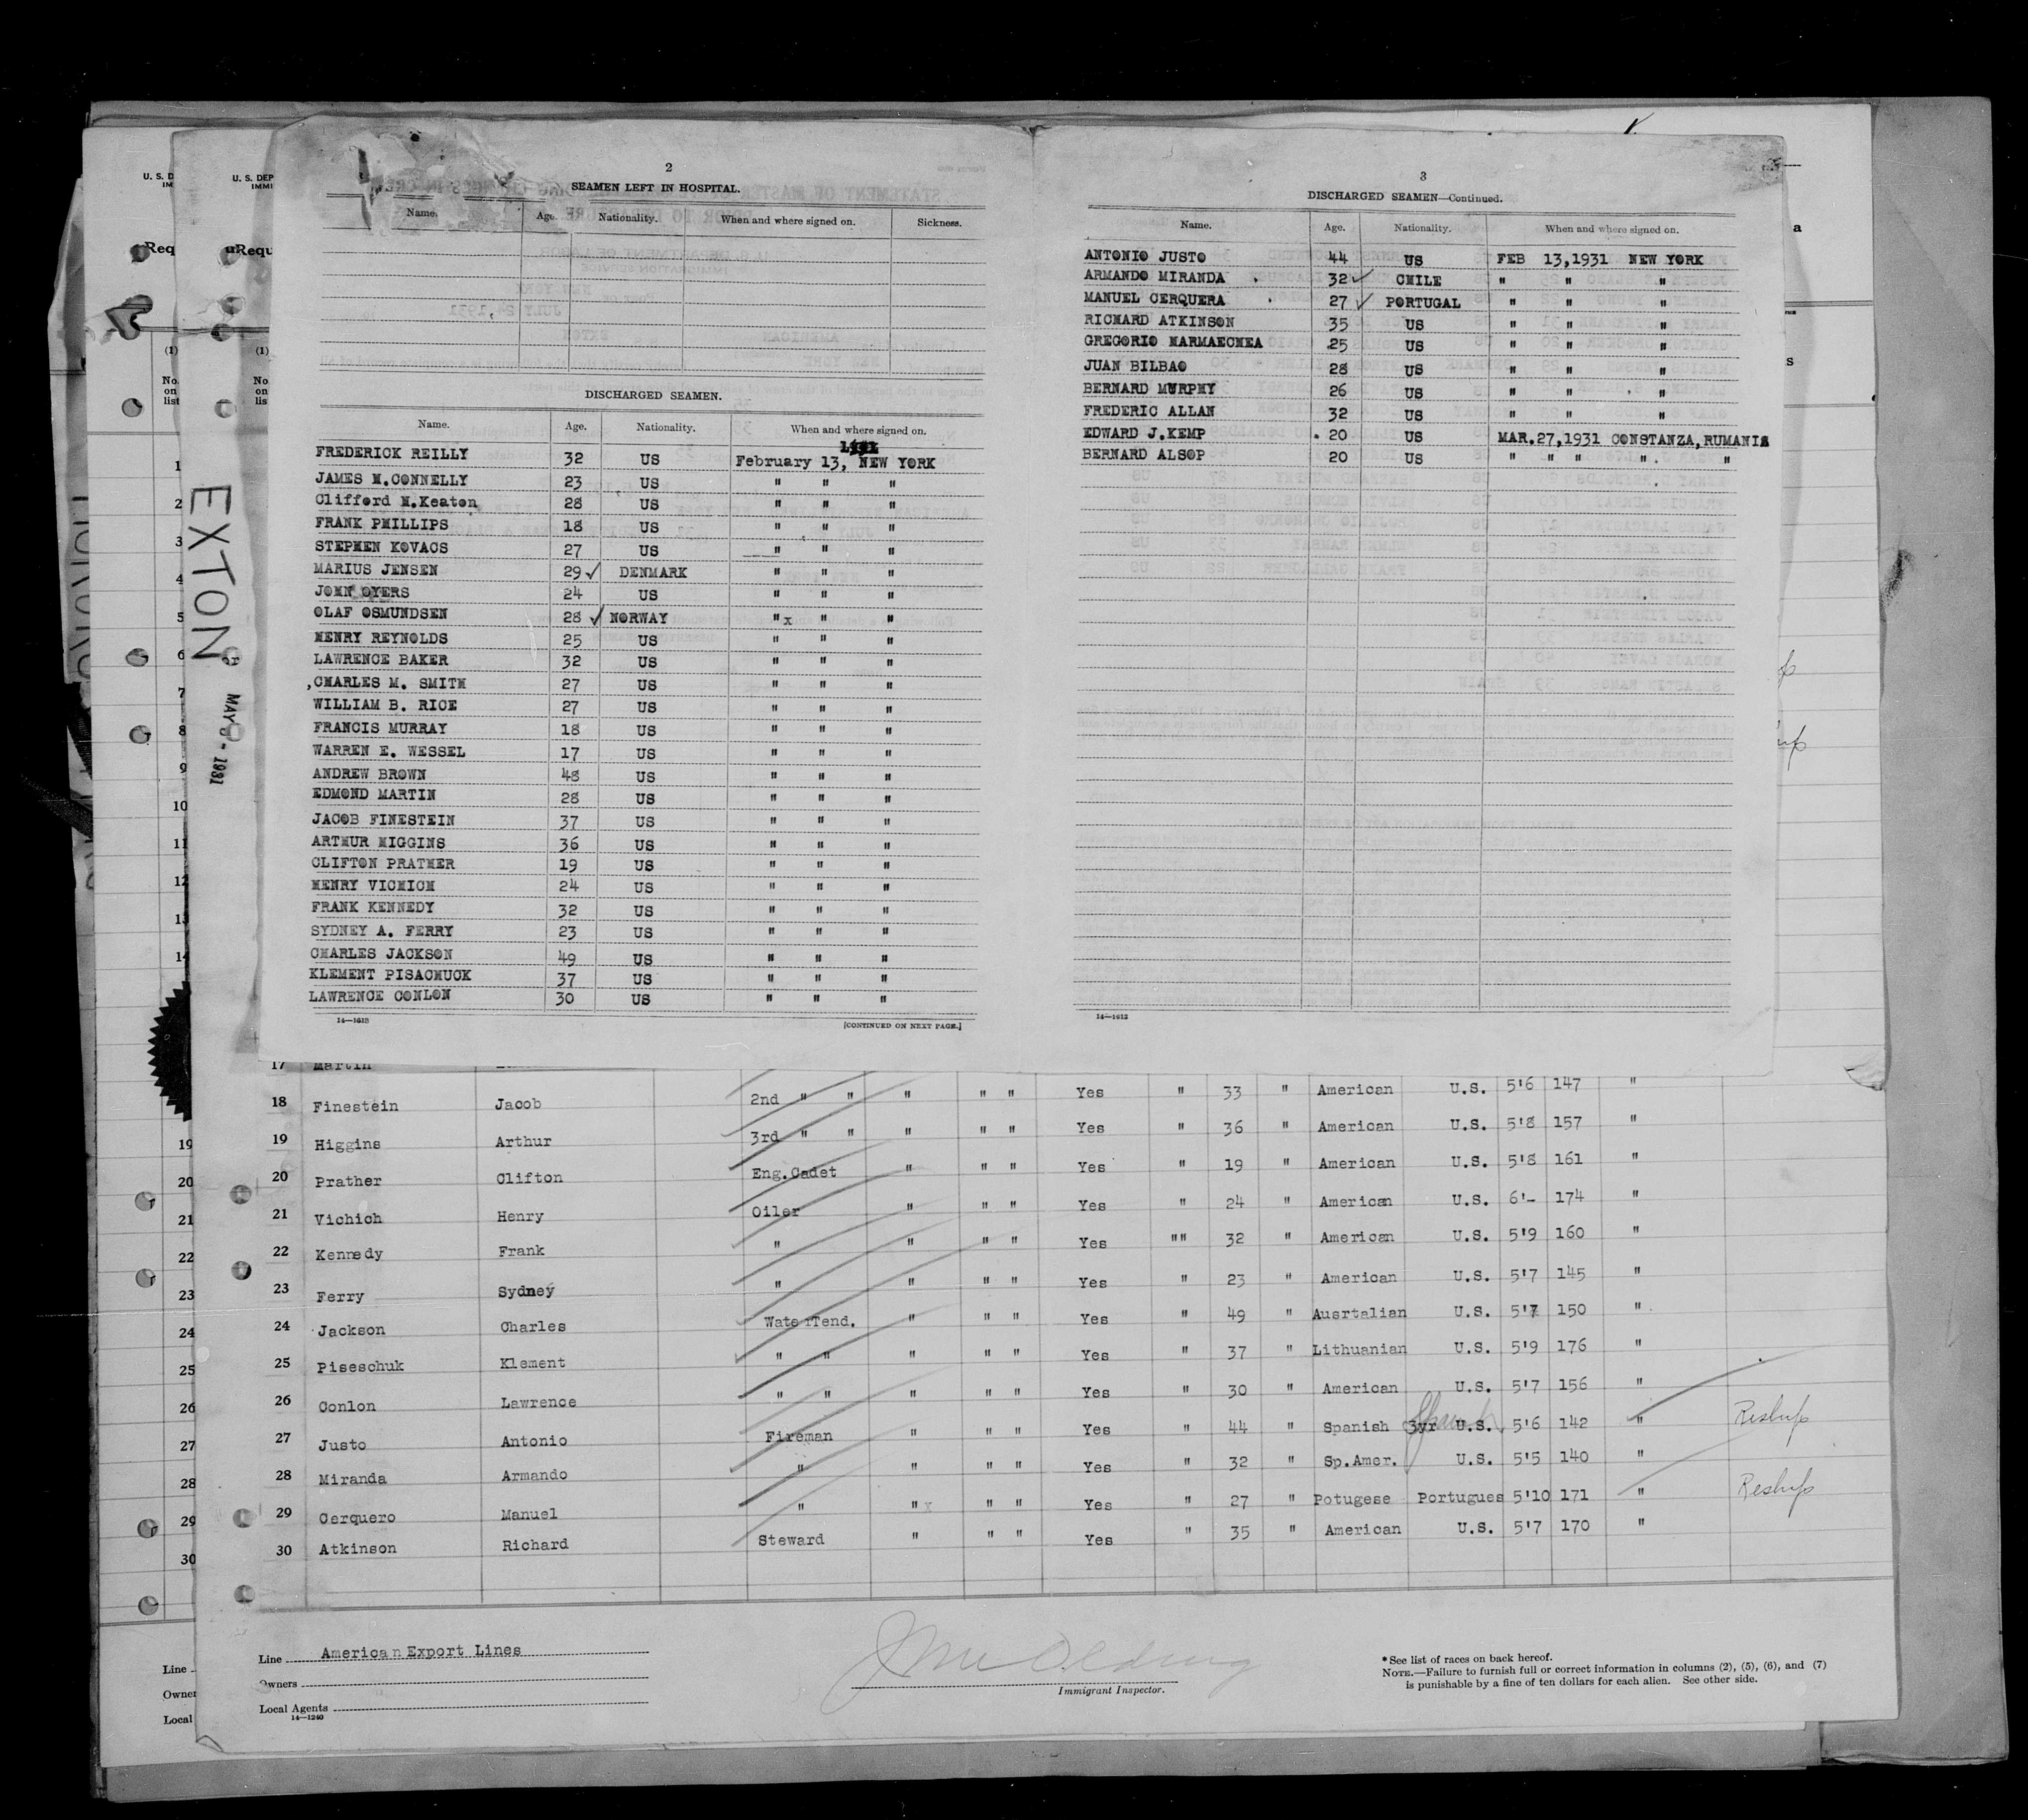 2
SEAMEN LEFT IN HOSPITAL.
Name. Age. Nationality. When and where signed on. Sickness.
DISCHARGED SEAMEN.
Name. Age. Nationality. When and where signed on.
1931
FREDERICK REILLY 32 US February 13, NEW YORK
JAMES M.CONNELLY 23 US " " "
Clifford M.Keaton 28 US " " "
FRANK PHILLIPS 18 US " " "
STEPHEN KOVACS 27 US " " "
MARIUS JENSEN 29 ✓ DENMARK " " "
JOHN OYERS 24 US " " "
OLAF OSMUNDSEN 28 ✓ NORWAY " x " "
HENRY REYNOLDS 25 US " " "
LAWRENCE BAKER 32 US " " "
CHARLES M. SMITH 27 US " " "
WILLIAM B. RICE 27 US " " "
FRANCIS MURRAY 18 US " " "
WARREN E. WESSEL 17 US " " "
ANDREW BROWN 48 US " " "
EDMOND MARTIN 28 US " " "
JACOB FINESTEIN 37 US " " "
ARTHUR HIGGINS 36 US " " "
CLIFTON PRATHER 19 US " " "
HENRY VICHICH 24 US " " "
FRANK KENNEDY 32 US " " "
SYDNEY A. FERRY 23 US " " "
CHARLES JACKSON 49 US " " "
KLEMENT PISACHUCK 37 US " " "
LAWRENCE CONLON 30 US " " "
14—1613
[CONTINUED ON NEXT PAGE.]
3
DISCHARGED SEAMEN—Continued.
Name. Age. Nationality. When and where signed on.
ANTONIO JUSTO 44 US FEB 13,1931 NEW YORK
ARMANDO MIRANDA 32 ✓ CHILE " " "
MANUEL CERQUERA 27 ✓ PORTUGAL " " "
RICHARD ATKINSON 35 US " " "
GREGORIO NARMAECHEA 25 US " " "
JUAN BILBAO 28 US " " "
BERNARD MURPHY 26 US " " "
FREDERIC ALLAN 32 US " " "
EDWARD J.KEMP 20 US MAR.27,1931 CONSTANZA,RUMANIA
BERNARD ALSOP 20 US " " " " "
14—1612
U. S. D
IM
Req
(1)
No.
on
list
1
2
3
4
5
6
7
8
9
10
11
12
13
14
19
20
21
22
23
24
25
26
27
28
29
30
Line
Owner
Local
U. S. DEP
IMMI
Requ
(1)
No.
on
list
EXTON
MAY - 1931
17 Martin
18 Finestein Jacob 2nd " " " " " Yes " 33 " American U.S. 5'6 147 "
19 Higgins Arthur 3rd " " " " " Yes " 36 " American U.S. 5'8 157 "
20 Prather Clifton Eng.Cadet " " " Yes " 19 " American U.S. 5'8 161 "
21 Vichich Henry Oiler " " " Yes " 24 " American U.S. 6'- 174 "
22 Kennedy Frank " " " " Yes "" 32 " American U.S. 5'9 160 "
23 Ferry Sydney " " " " Yes " 23 " American U.S. 5'7 145 "
24 Jackson Charles WaterTend. " " " Yes " 49 " Ausrtalian U.S. 5'7 150 "
25 Piseschuk Klement " " " " " Yes " 37 " Lithuanian U.S. 5'9 176 "
26 Conlon Lawrence " " " " " Yes " 30 " American U.S. 5'7 156 "
27 Justo Antonio Fireman " " " Yes " 44 " Spanish 3yr U.S. 5'6 142 " Reship
28 Miranda Armando " " " " Yes " 32 " Sp.Amer. U.S. 5'5 140 "
29 Cerquero Manuel " " x " " Yes " 27 " Potugese Portugues 5'10 171 " Reship
30 Atkinson Richard Steward " " " Yes " 35 " American U.S. 5'7 170 "
Line American Export Lines
Owners
Local Agents
14—1240
Immigrant Inspector.
*See list of races on back hereof.
NOTE.—Failure to furnish full or correct information in columns (2), (5), (6), and (7)
is punishable by a fine of ten dollars for each alien. See other side.